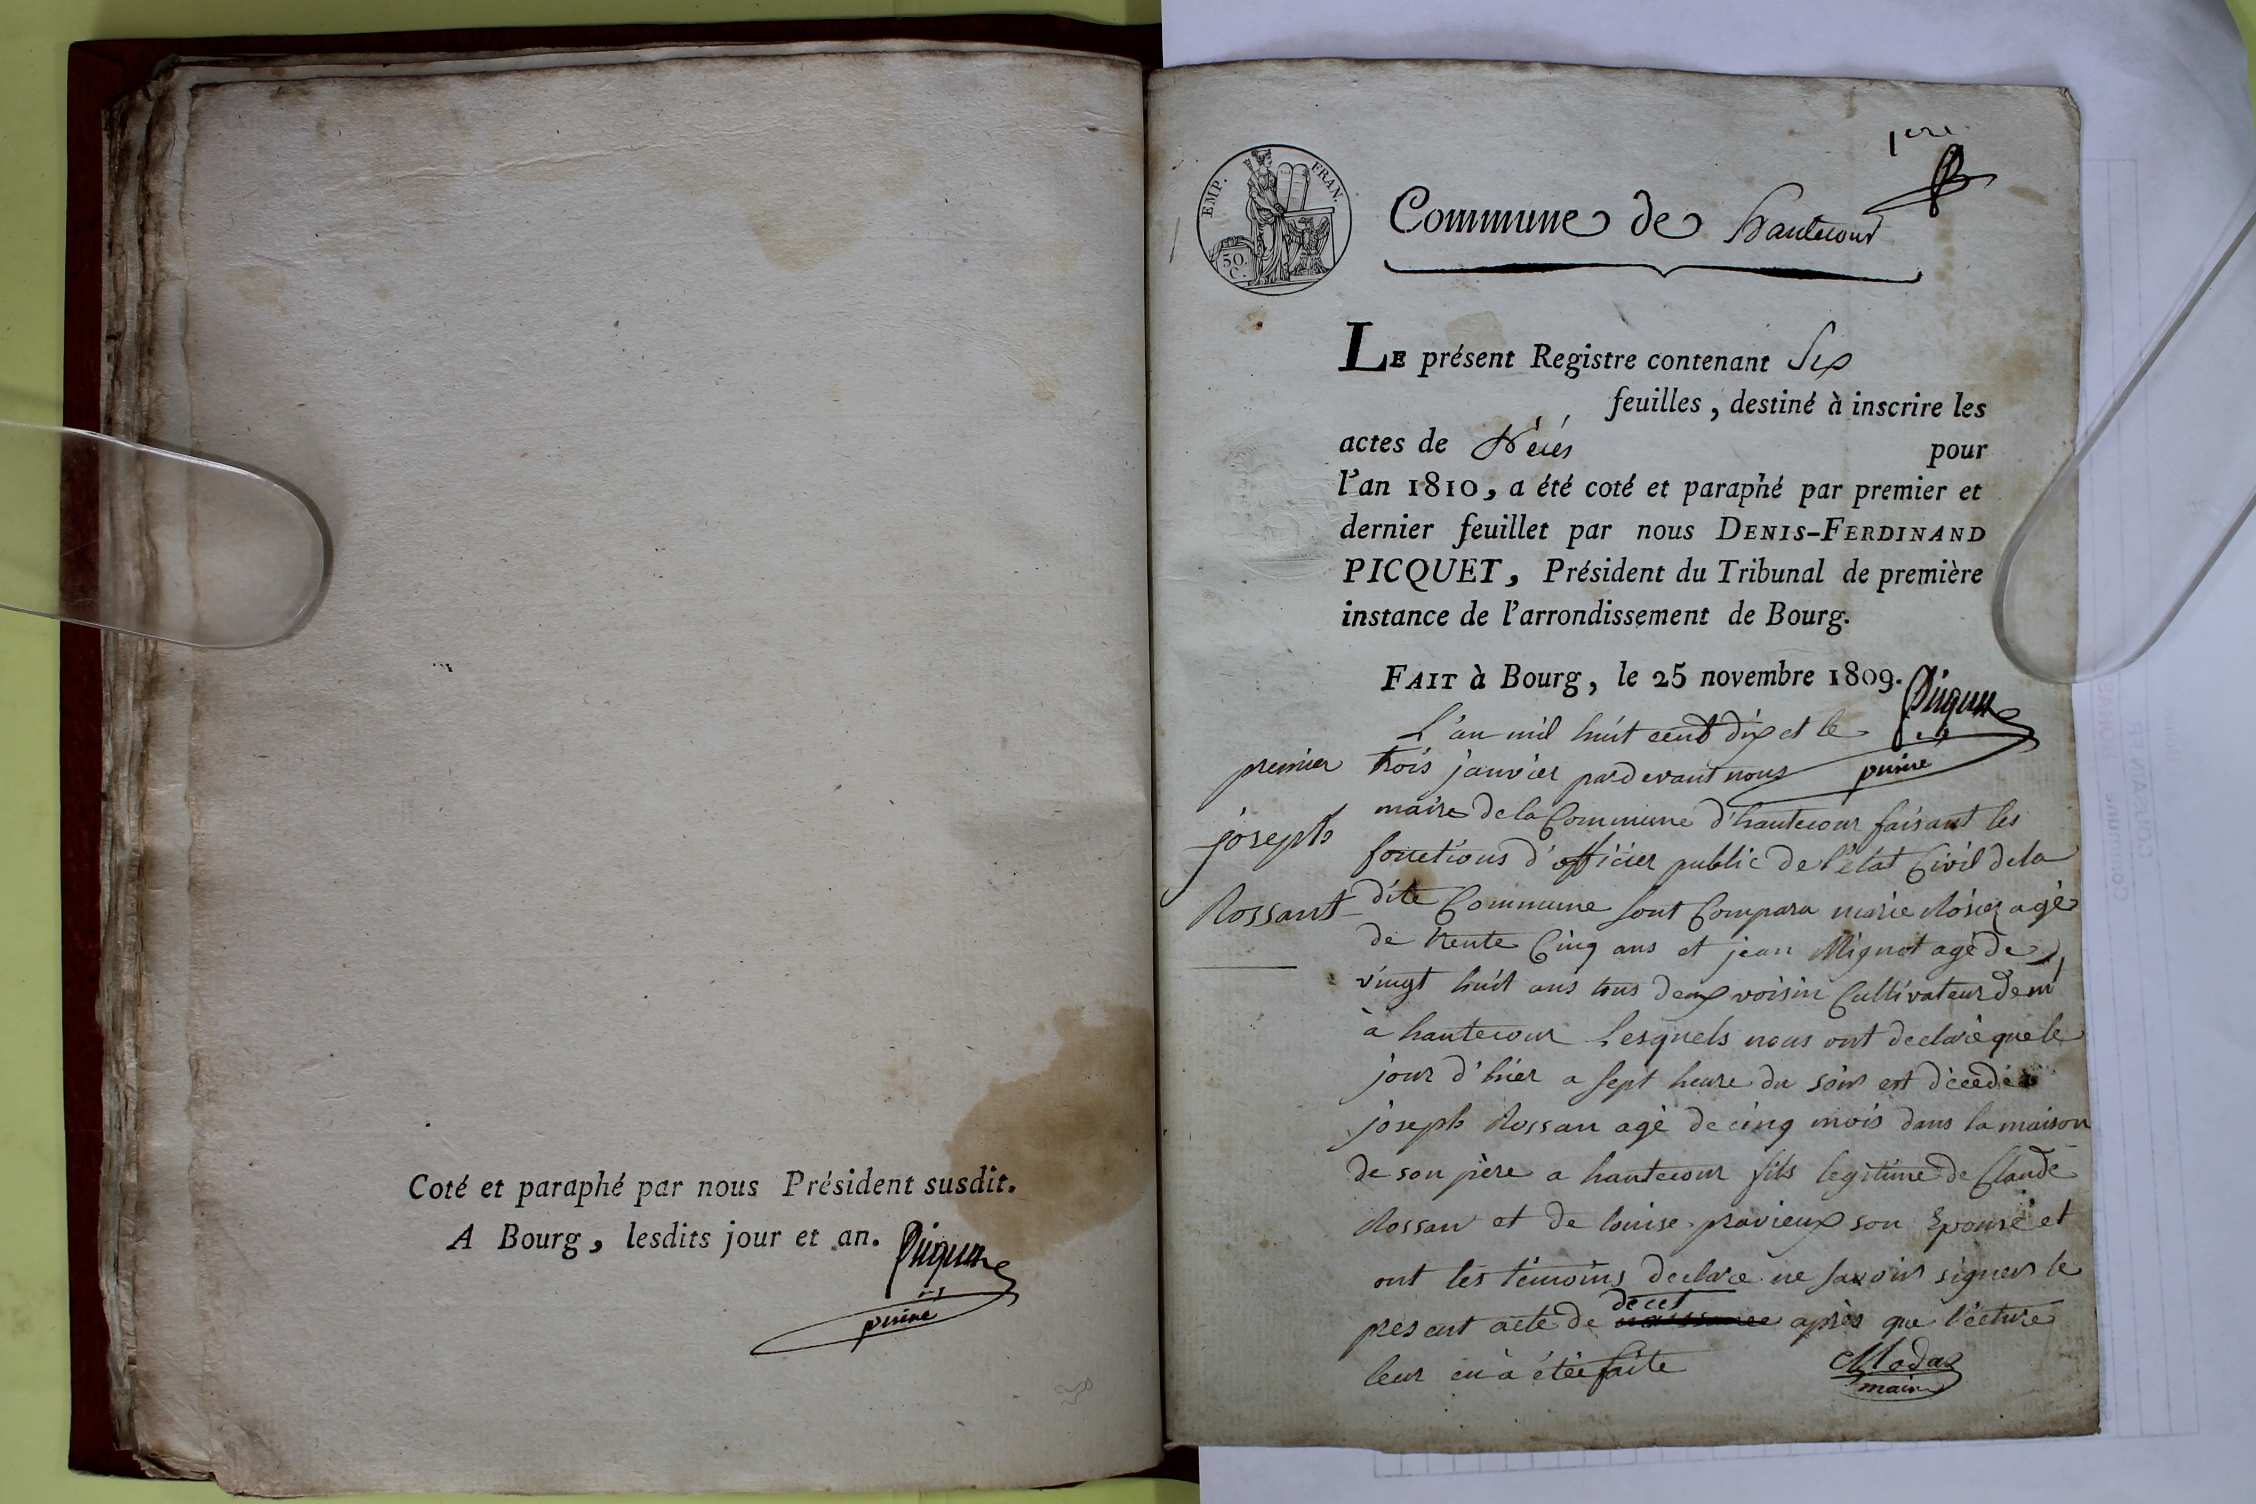 Coté et paraphé par nous Président susdit.
A Bourg, lesdits jour et an. Picquet
1ere
EMP. FRAN.
50.
C.
Commune de hautecour
LE présent Registre contenant Six
feuilles, destiné à inscrire les
actes de Décés pour
l'an 1810, a été coté et paraphé par premier et
dernier feuillet par nous DENIS-FERDINAND
PICQUET, Président du Tribunal de première
instance de l'arrondissement de Bourg.
FAIT à Bourg, le 25 novembre 1809. Picquet
premier
joseph
Rossant
L'an mil huit cent dix et le
trois janvier pardevant nous
maire de la Commune d'hautecour faisant les
fonctions d'officier public de l'état Civil dela
dite Commune sont Compara marie Rosier agé
de trente Cinq ans et jean Mignot agé de
vingt huit ans tous deux voisin Cultivateur dem
à hautecour Lesquels nous ont declaré que le
jour d'hier a sept heure du soir est décedé
joseph Rossan agé de cinq mois dans la maison
de son père a hautecour fils legitime de Claude
Rossan et de louise pravieux son Epouse et
ont les témoins declare ne savoir signer le
present acte de decet après que lécture
leur en à étée faite
Modas
maire